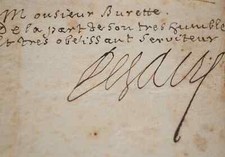 Monsieur Burette.
De la part de son tres humble
Et tres obeissant serviteur